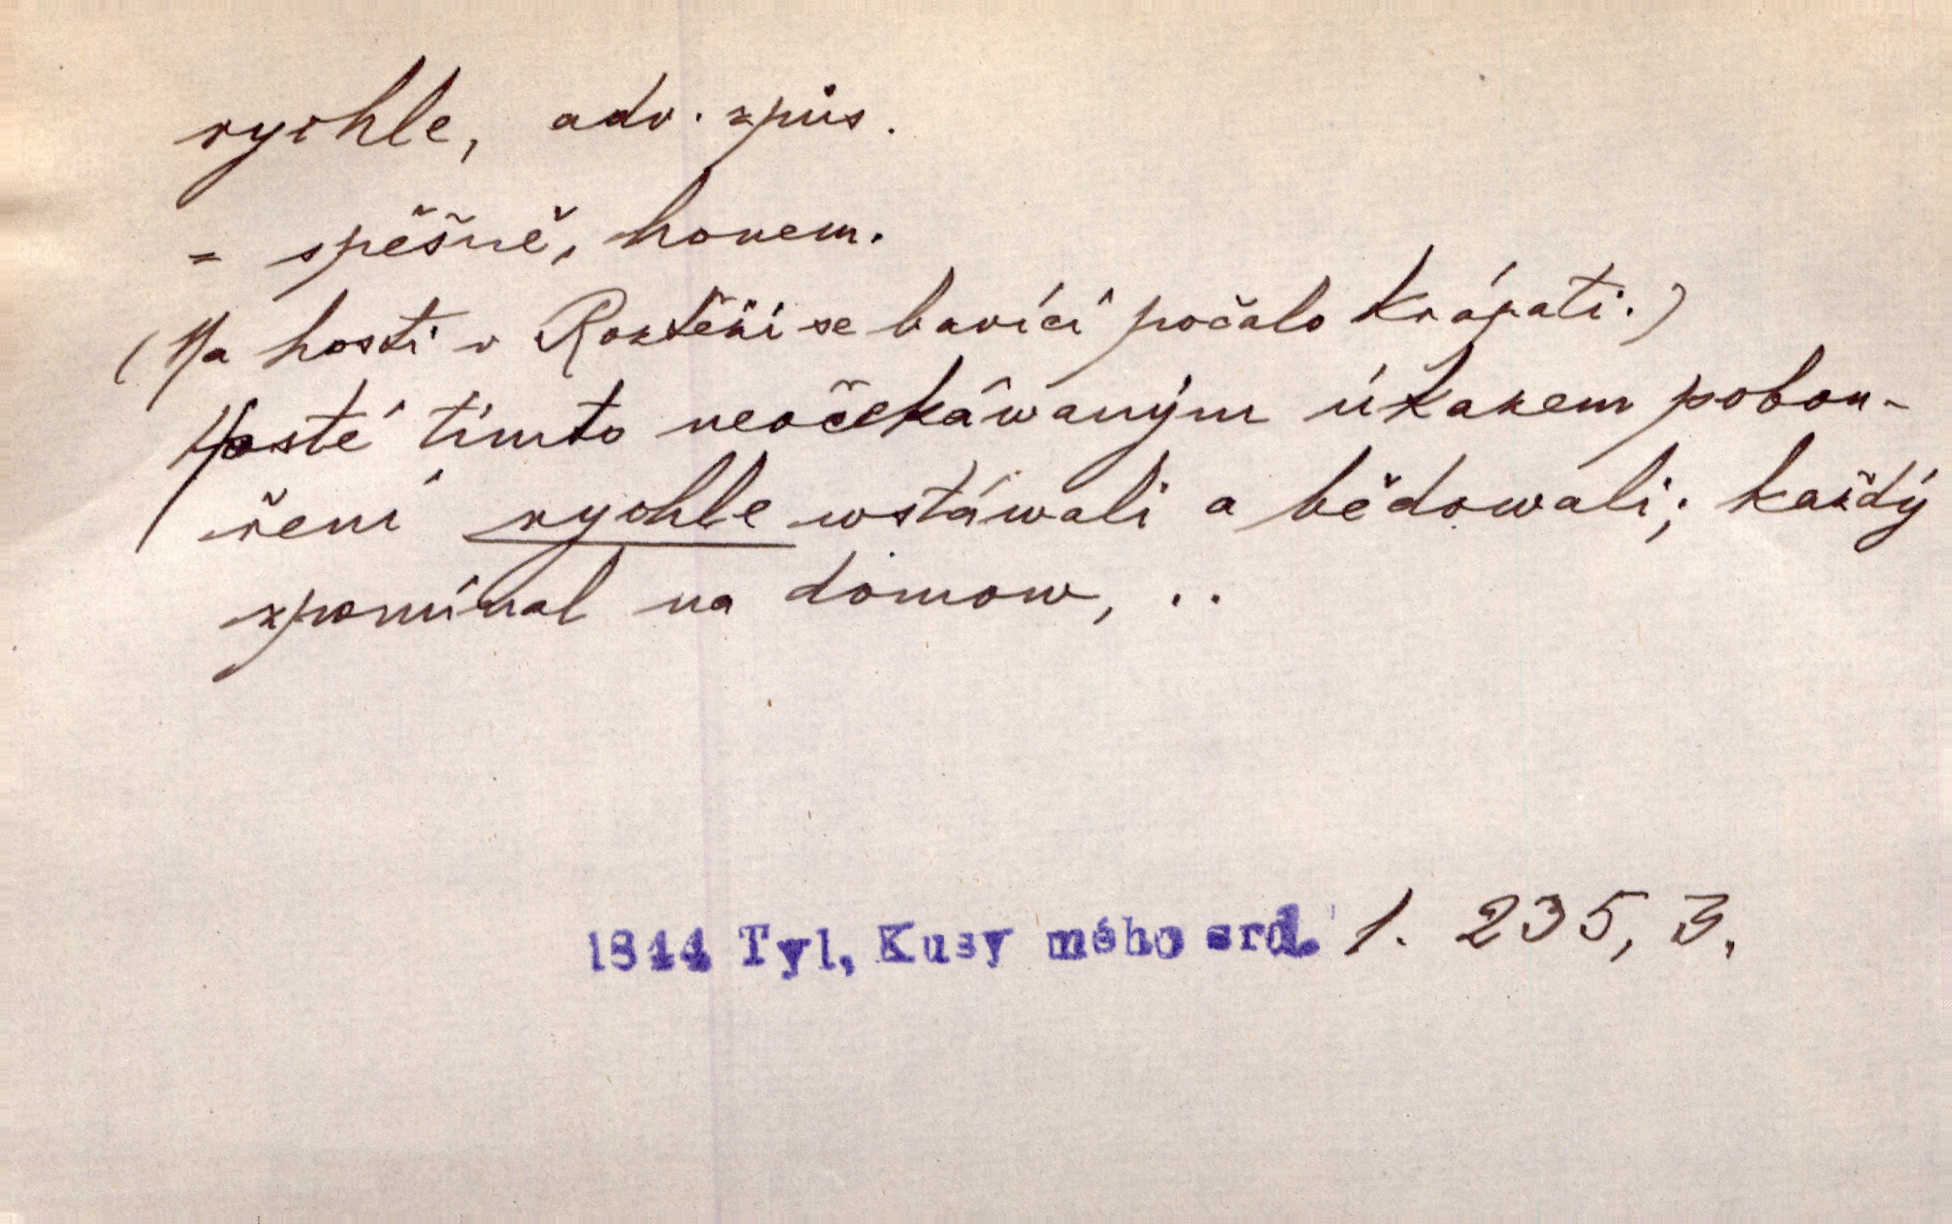 rychle, adv. způs.
= spěšně, honem.
(Na hosti v Roztěži se bavící počalo krápati.)
Hosté tímto neočekáwaným úkazem pobou-
řeni rychle wstáwali a bědowali; každý
zpomínal na domow, ..
1844 Tyl, Kusy mého srd. 1. 235, 3.